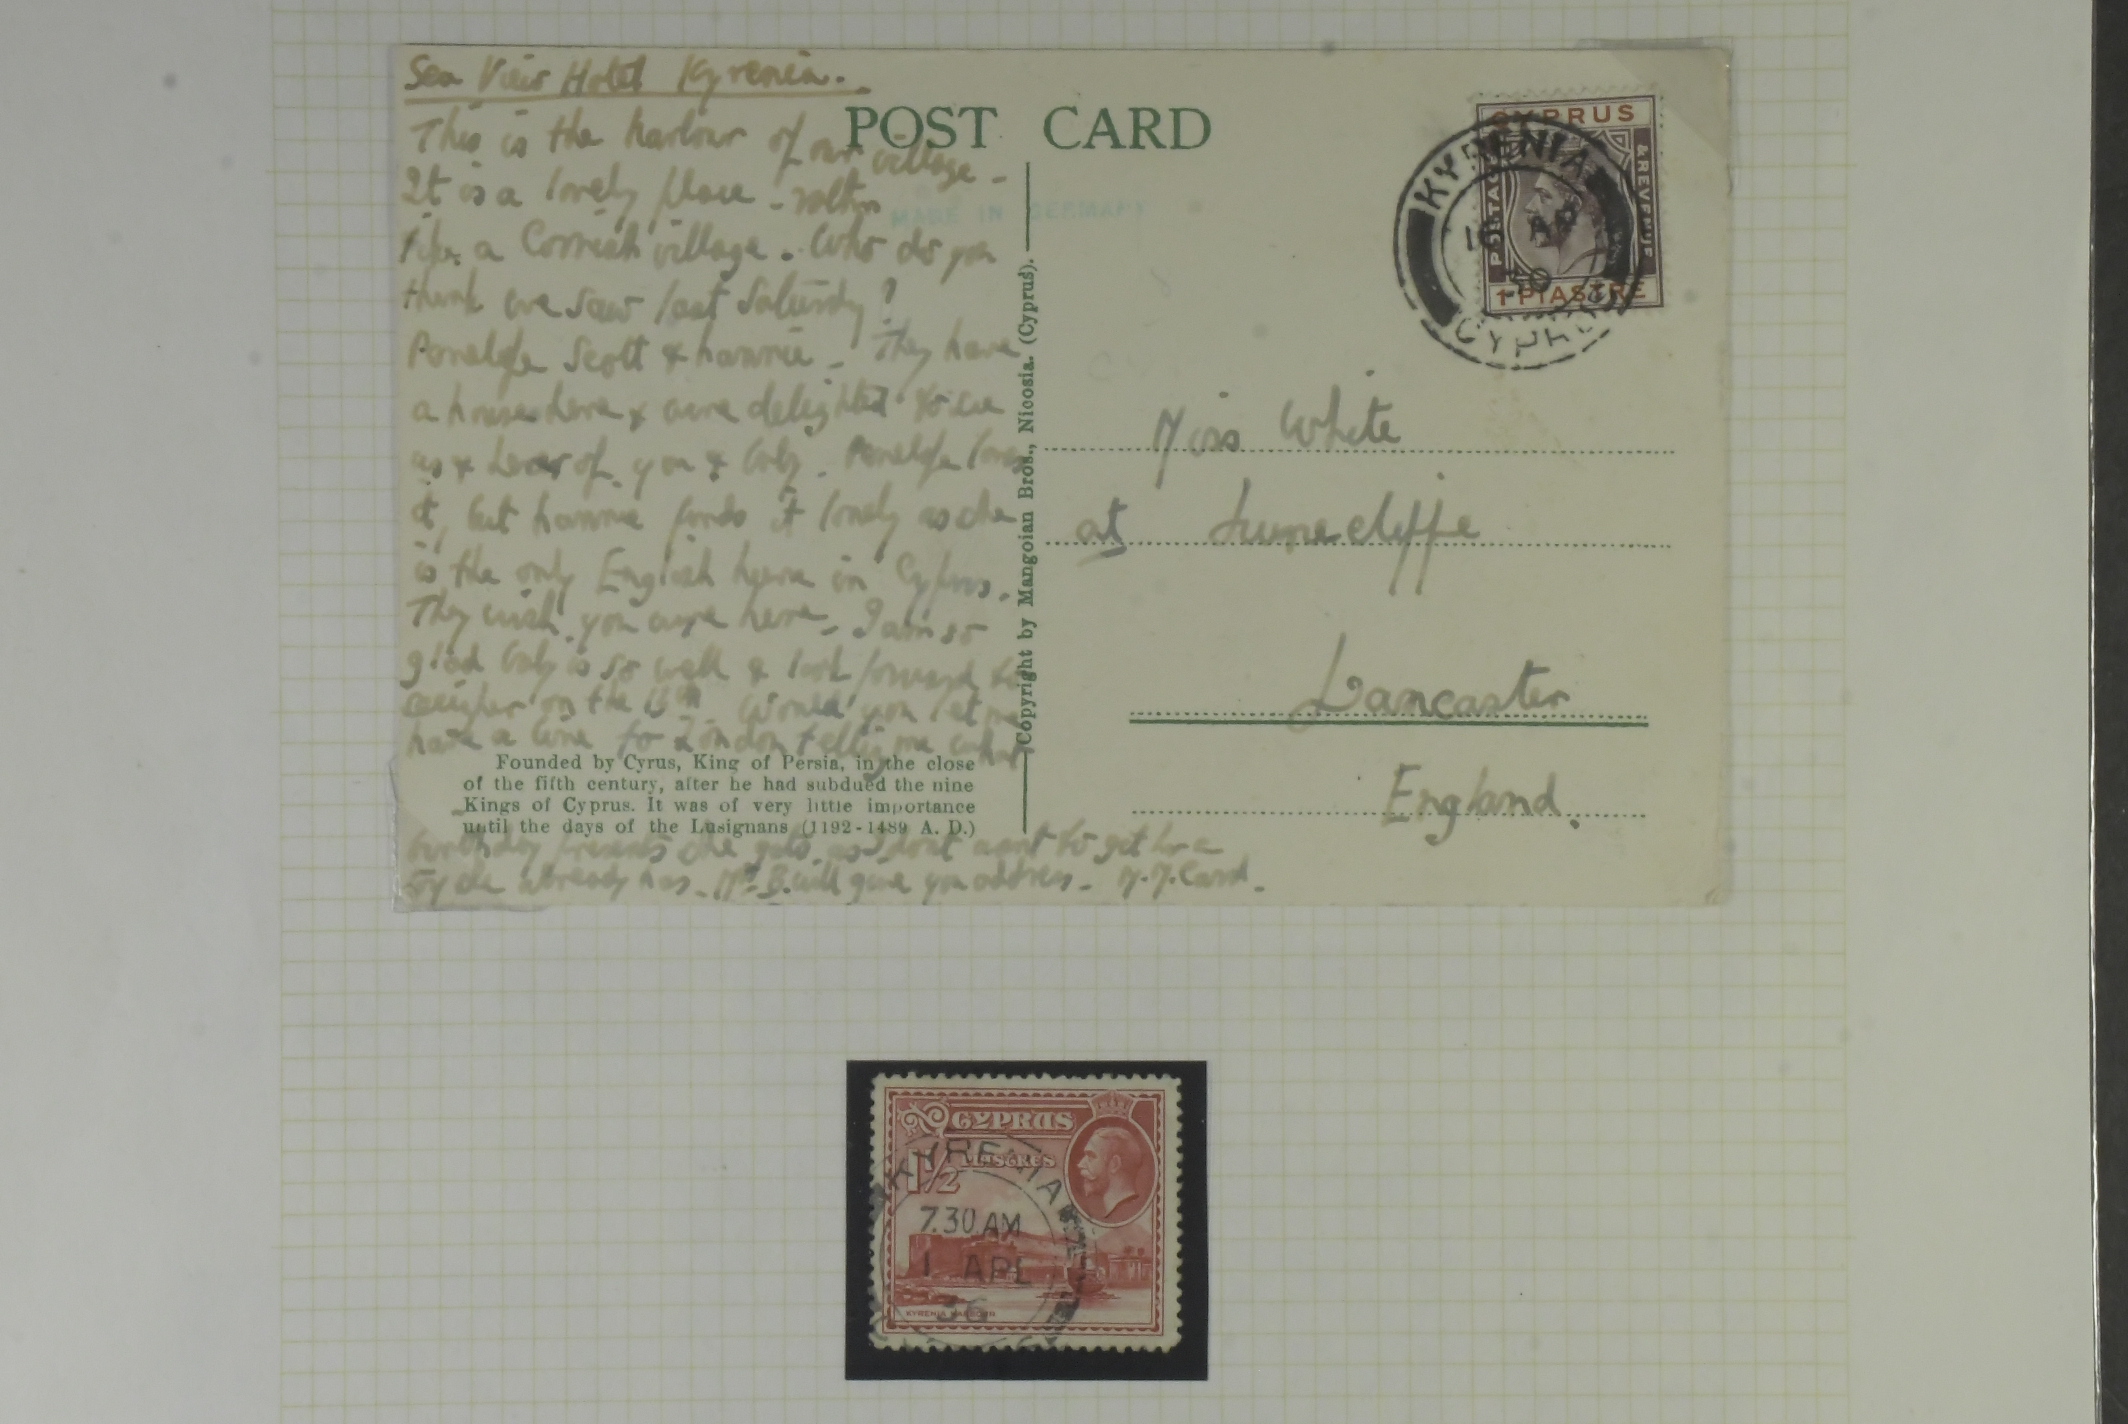 Sea View Hotel Kyrenia.
This is the harbour of our village -
It is a lovely place - rather
like a Cornish village. Who do you
think we saw last Saturday?
Penelope Scott & Nannie - They have
a house here & were delighted to see
us & hear of you & Gily. Penelope loves
it, but Nannie finds it lonely as she
is the only English Nurse in Cyprus.
They wish you were here - I am so
glad is so well & look forward to
on the 15th Would you let me
have a line to London telling me what
birthday presents she gets as I don't want to get her a
toy she already has. Mr. B. will give you address - M.M. Card.
Founded by Cyrus, King of Persia, in the close
of the fifth century, after he had subdued the nine
Kings of Cyprus. It was of very little importance
until the days of the Lusignans (1192-1489 A. D.)
POST CARD
MADE IN GERMANY
Copyright by Mangoian Bros., Nicosia. (Cyprus).
CYPRUS
POSTAGE
& REVENUE
1 PIASTRE
KYRENIA
AP
30
CYPRUS
Miss White
at Lunecliffe
Lancaster
England.
CYPRUS
1½ PIASTRES
KYRENIA HARBOUR
KYRENIA
7.30 AM
1 APL
36